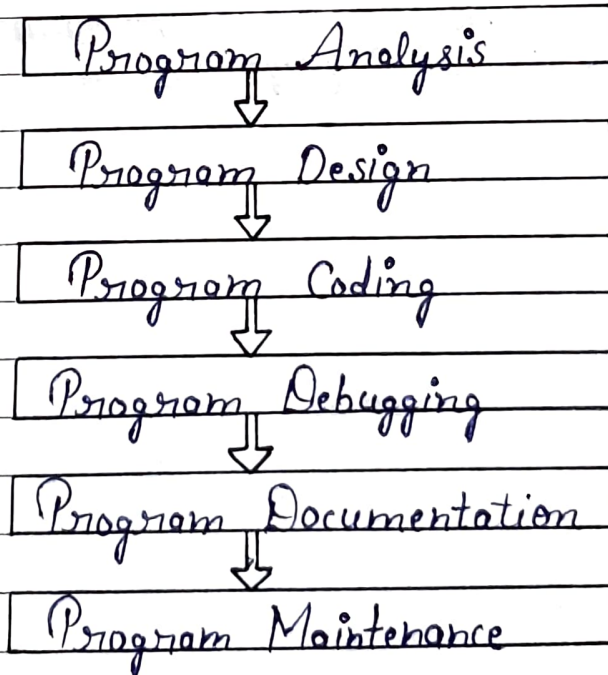 Program Analysis
Program Design
Program Coding
Program Debugging
Program Documentation
Program Maintenance